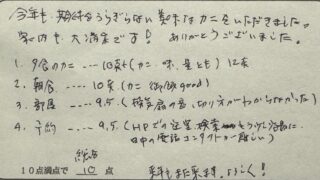 今年も期待をうらぎらない美味なカニをいただきました。
家内も大満足です! ありがとうございました。
1. 夕食のカニ ‥‥ 10点+(カニ、味、量とも) 12点
2. 朝食 ‥‥ 10点(カニ御飯good)
3. 部屋 ‥‥ 9.5(換気扇の音、切り方がわからなかった)
4. 予約 ‥‥ 9.5(HPでの空室、検索もう少し
日中の電話コンタクトが難しい)
総合
10点満点で 10 点
来年もまた来ます。よろしく!